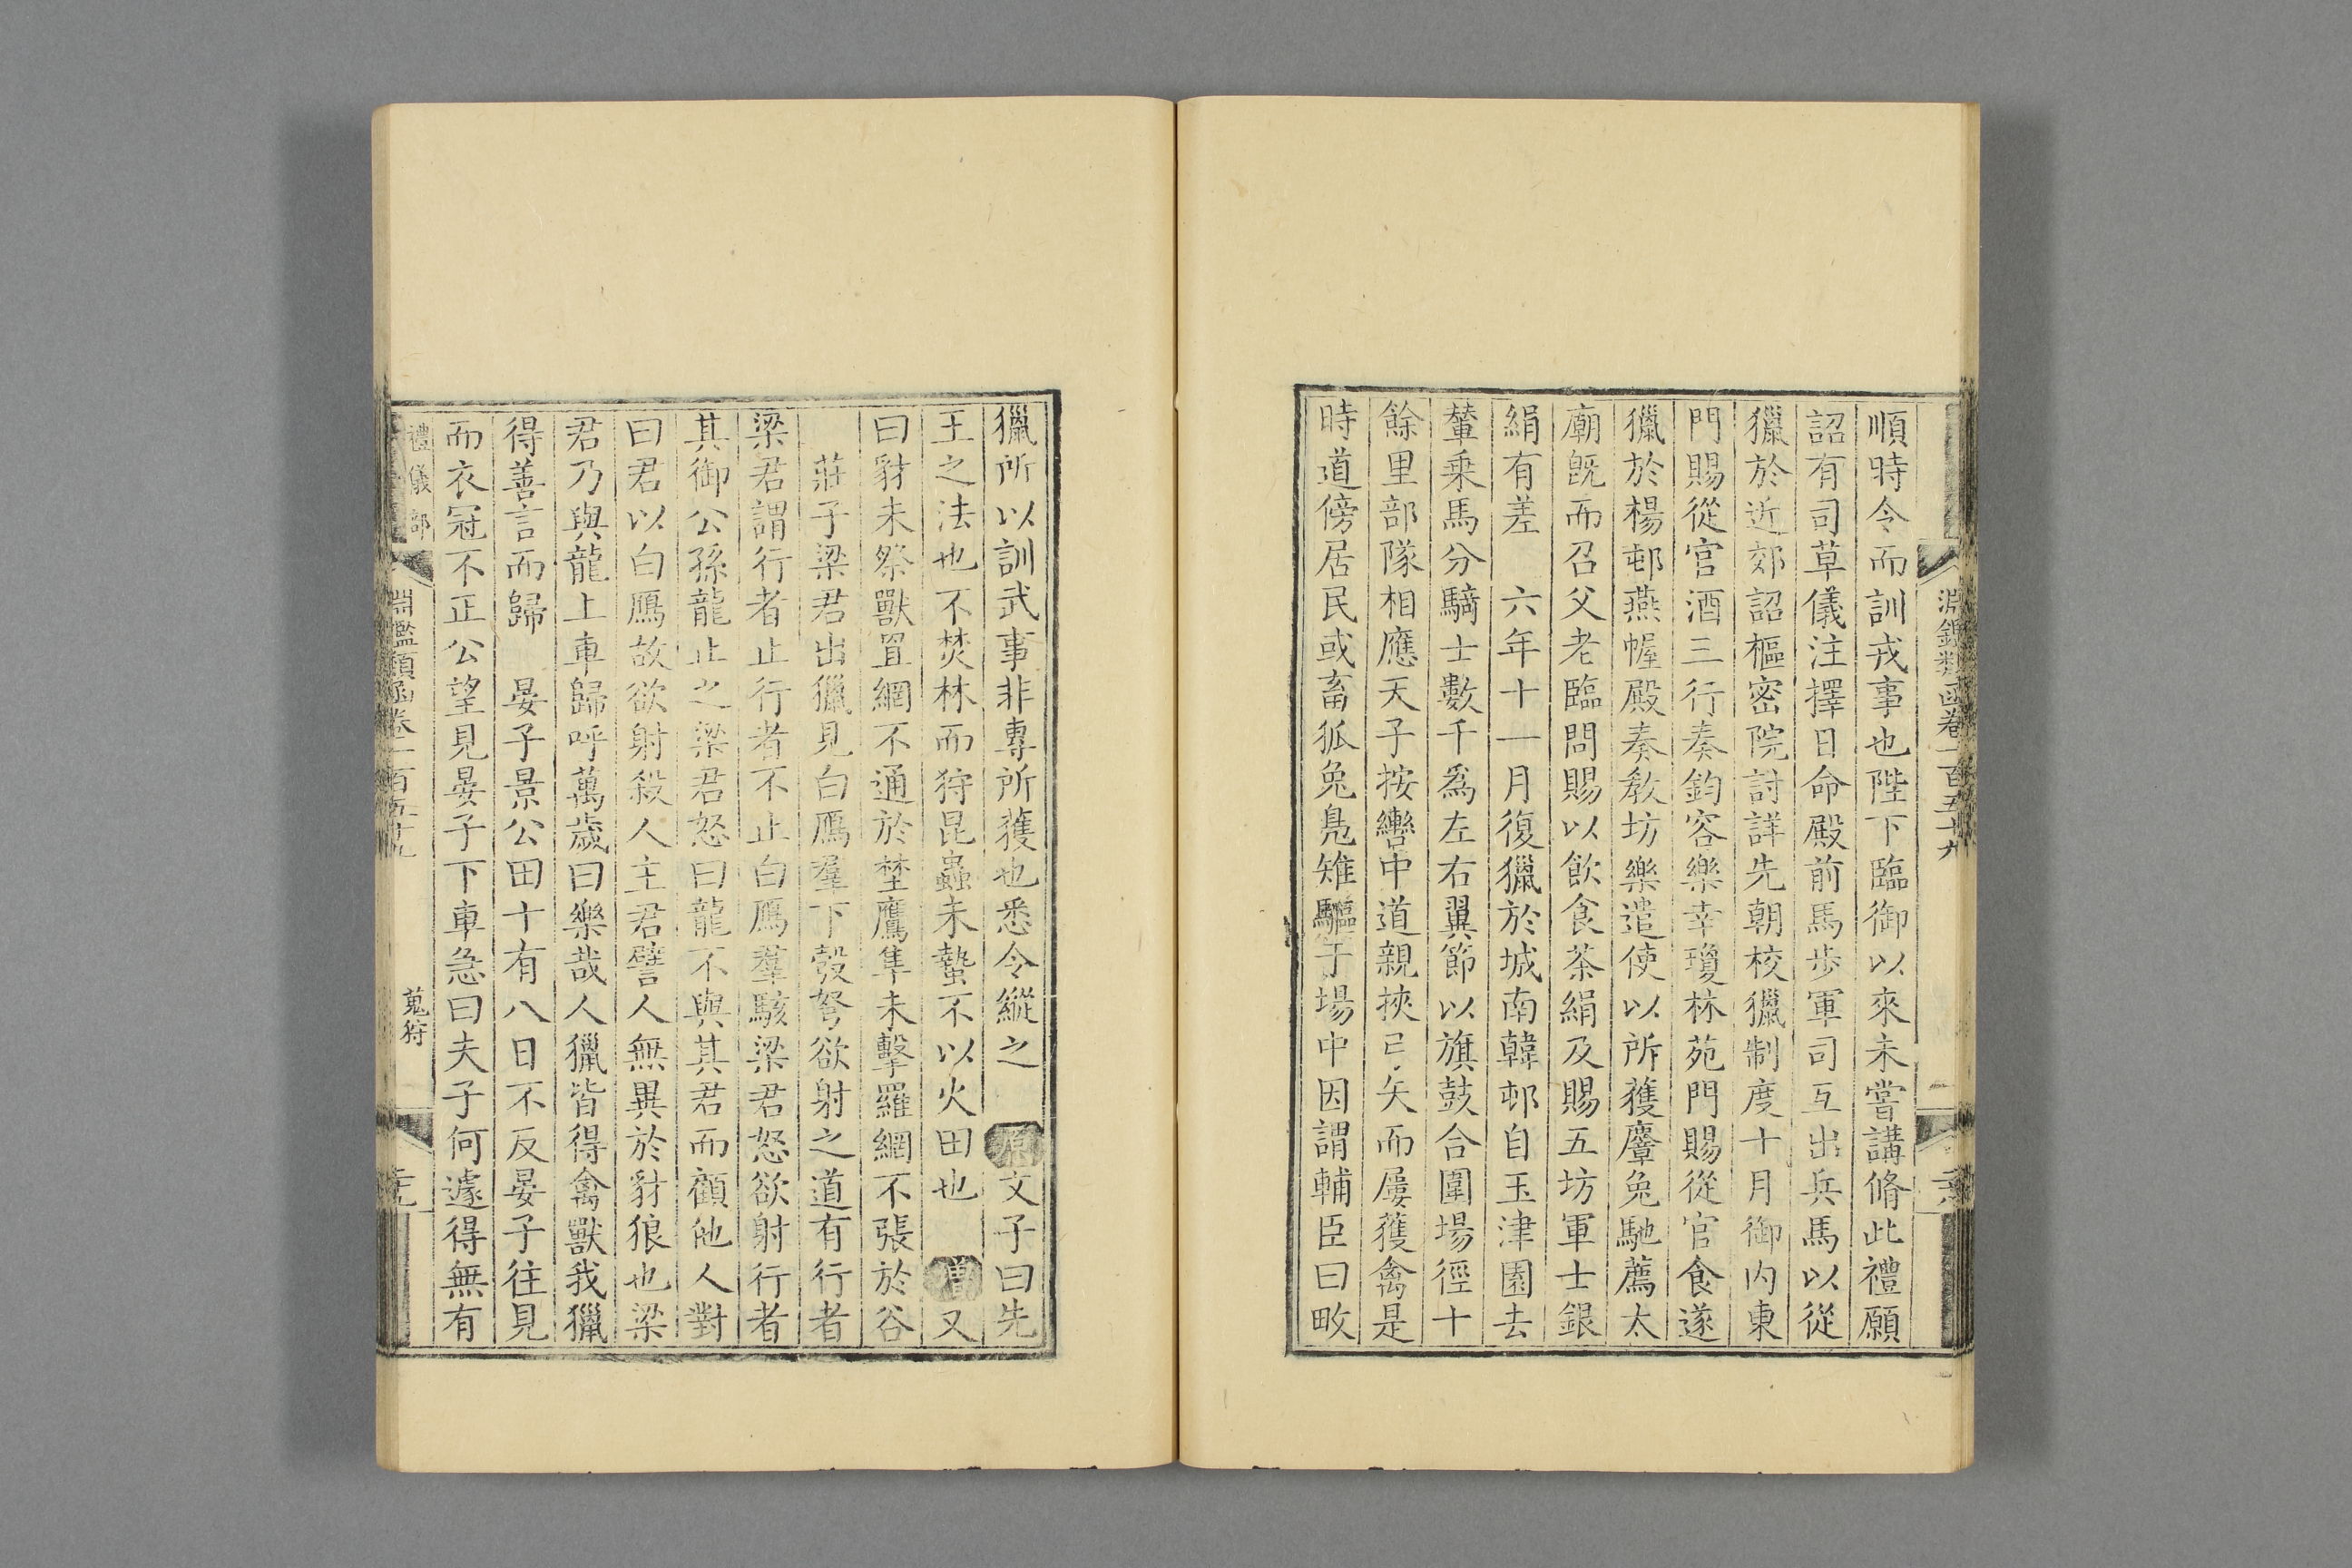 淵鑑類函卷一百五十九
順時令而訓戎事也陛下臨御以來未嘗講脩此禮願
詔有司草儀注擇日命殿前馬步軍司互出兵馬以從
獵於近郊詔樞密院討詳先朝校獵制度十月御內東
門賜從官酒三行奏鈞容樂幸瓊林苑門賜從官食遂
獵於楊邨燕幄殿奏敎坊樂遣使以所獲麞兔馳薦太
廟旣而召父老臨問賜以飮食茶絹及賜五坊軍士銀
絹有差　六年十一月復獵於城南韓邨自玉津園去
輦乘馬分騎士數千爲左右翼節以旗鼓合圍場徑十
餘里部隊相應天子按轡中道親挾弓矢而屢獲禽是
時道傍居民或畜狐兔鳧雉驅于場中因謂輔臣曰畋
獵所以訓武事非專所獲也悉令縱之　原文子曰先
王之法也不焚林而狩昆蟲未蟄不以火田也　增又
曰豺未祭獸罝網不通於埜鷹隼未擊羅網不張於谷
莊子梁君出獵見白鴈羣下彀弩欲射之道有行者
梁君謂行者止行者不止白鴈羣駭梁君怒欲射行者
其御公孫龍止之梁君怒曰龍不與其君而顧他人對
曰君以白鴈故欲射殺人主君譬人無異於豺狼也梁
君乃與龍上車歸呼萬歲曰樂哉人獵皆得禽獸我獵
得善言而歸　晏子景公田十有八日不反晏子往見
而衣冠不正公望見晏子下車急曰夫子何遽得無有
禮儀部
淵鑑類函卷一百五十九
蒐狩